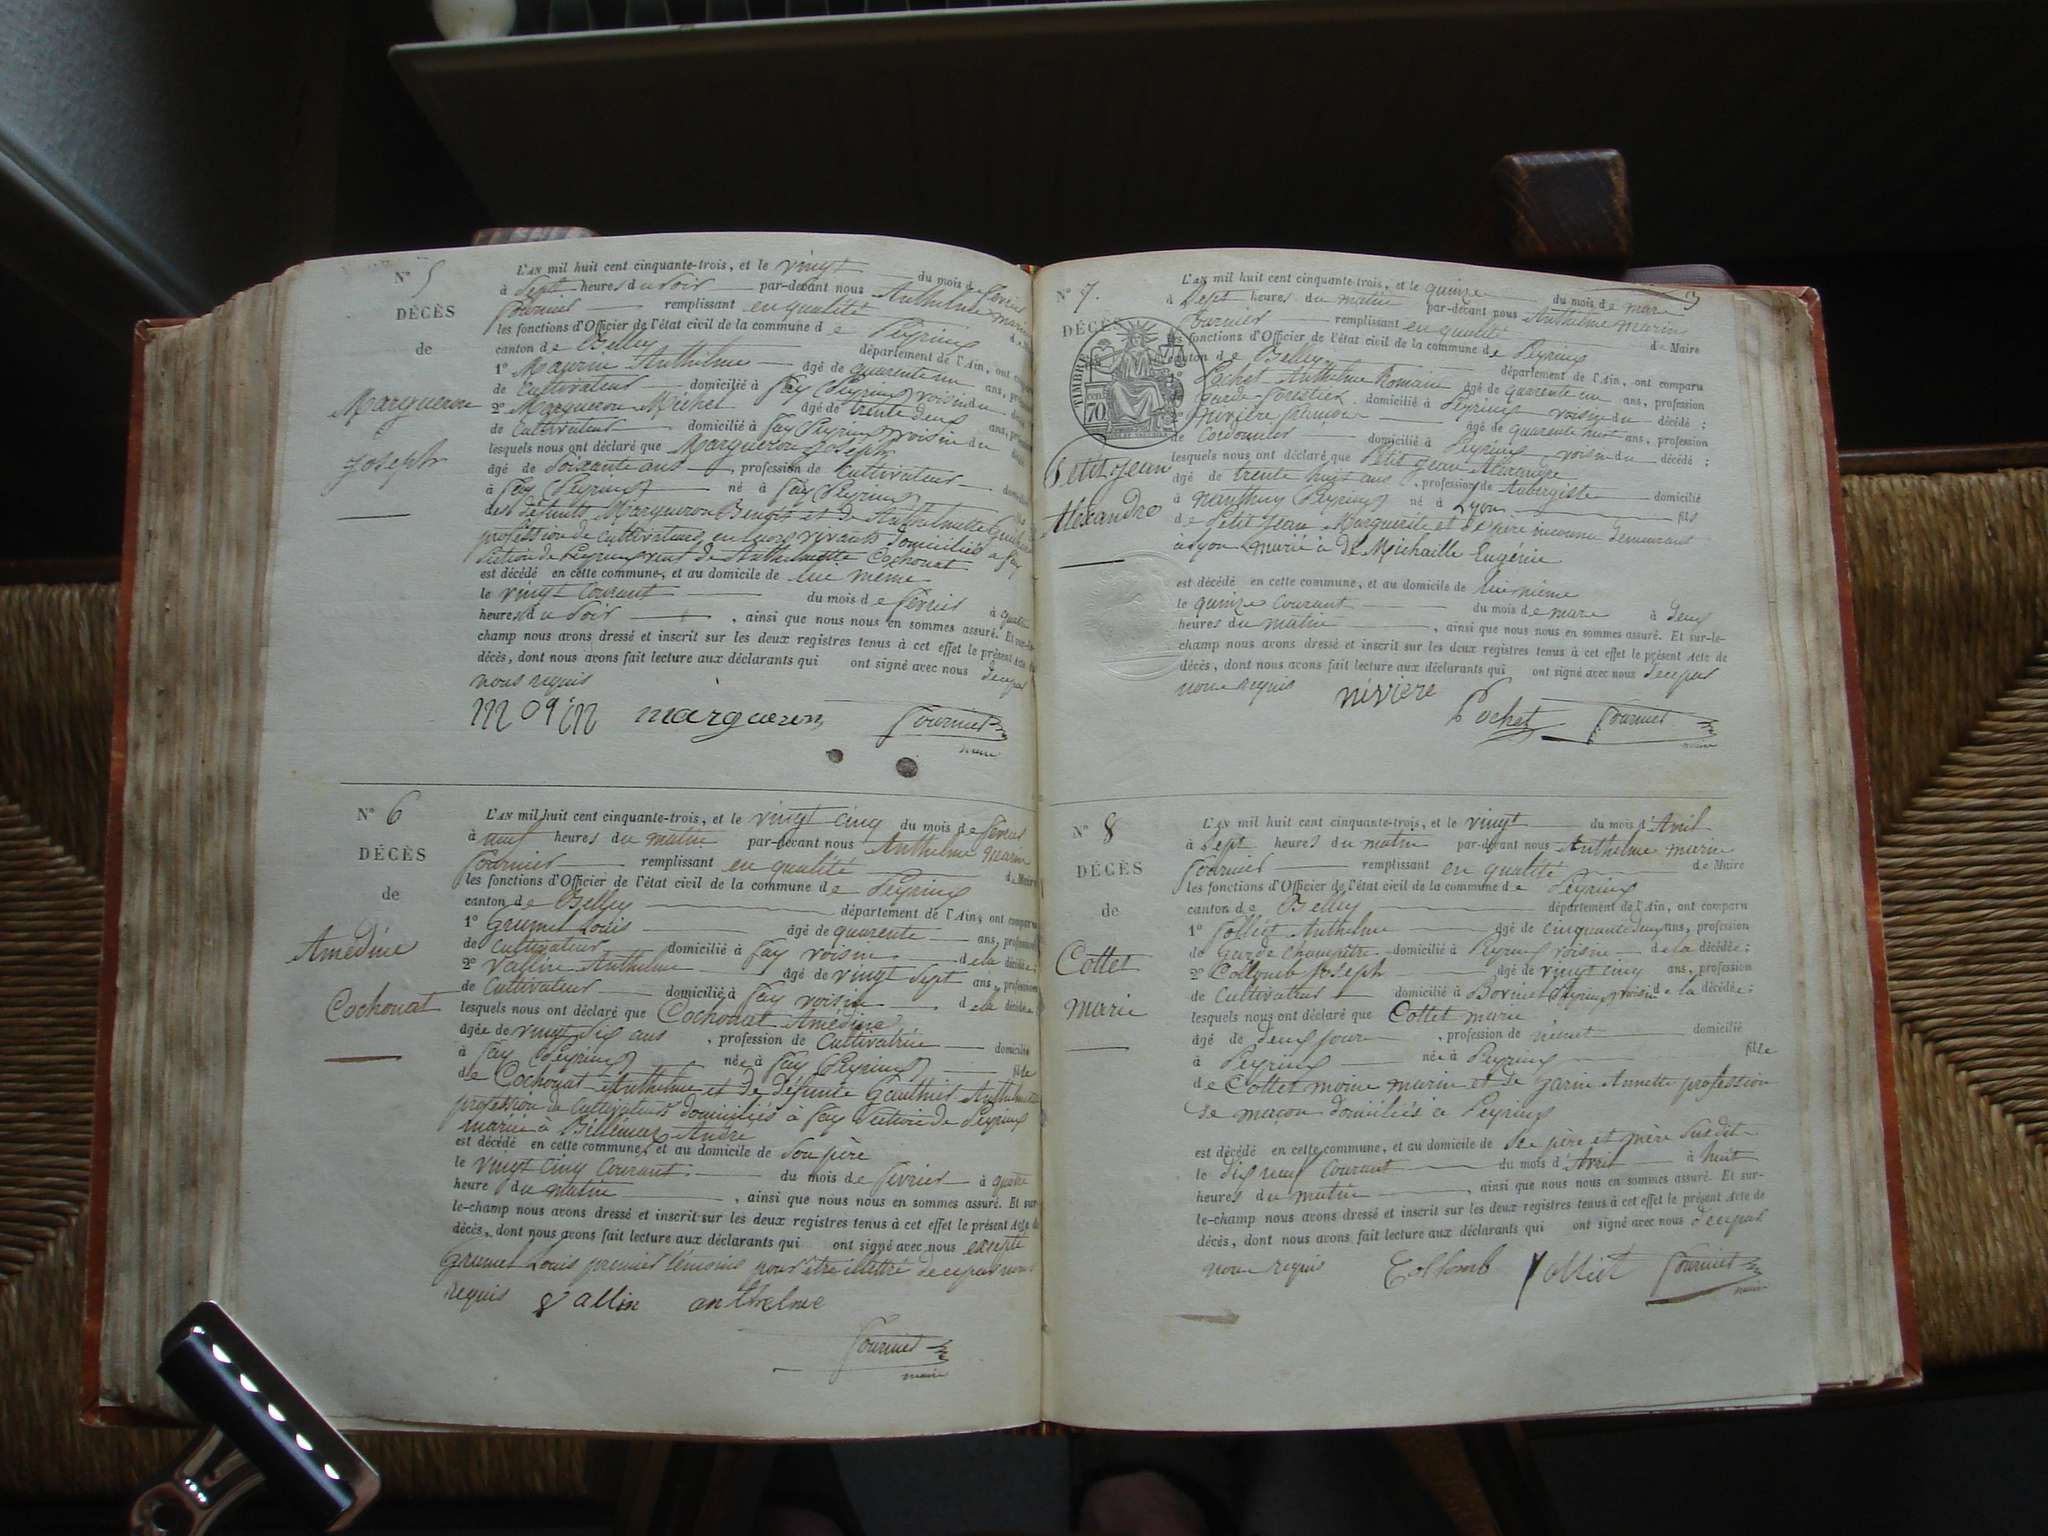 N° 5
DÉCÈS
de
Margueron
Joseph
L'AN mil huit cent cinquante-trois, et le vingt du mois de février
à sept heures du soir par-devant nous Anthelme marin
fournier remplissant en qualité de Maire
les fonctions d'Officier de l'état civil de la commune de Peyrieu
canton de Belley département de l'Ain, ont comparu
1° Anthelme âgé de quarente un ans, profession
de Cultivateur domicilié à fay (Peyrieu) voisin du
2° Margueron Michel âgé de trente deux ans, profession
de Cultivateur domicilié à fay (Peyrieu) voisin du
lesquels nous ont déclaré que Margueron Joseph
âgé de Soixante ans, profession de Cultivateur
à fay (Peyrieu) né à fay (Peyrieu)
des défunts Margueron Benoit et de Anthelmette
profession de cultivateurs en leurs vivants domiciliés a fay
section de Peyrieu veuf de Anthelmette Cochonat
est décédé en cette commune, et au domicile de lui même
le vingt Courant du mois de février à quatre
heures du soir, ainsi que nous nous en sommes assuré. Et sur-le-
champ nous avons dressé et inscrit sur les deux registres tenus à cet effet le présent acte de
décès, dont nous avons fait lecture aux déclarants qui ont signé avec nous de ce par
nous requis
morin margueron fournier
maire
N° 6
DÉCÈS
de
Amédine
Cochonat
L'AN mil huit cent cinquante-trois, et le vingt cinq du mois de février
à neuf heures du matin par-devant nous Anthelme marin
fournier remplissant en qualité de Maire
les fonctions d'Officier de l'état civil de la commune de Peyrieu
canton de Belley département de l'Ain, ont comparu
1° Grumel Louis âgé de quarente ans, profession
de Cultivateur domicilié à fay voisin de la décédée;
2° Vallin Anthelme âgé de vingt sept ans, profession
de Cultivateur domicilié à fay voisin de la décédée;
lesquels nous ont déclaré que Cochonat Amédine
âgée de vingt dix ans, profession de Cultivatrice domicilié
à fay (Peyrieu) née à fay (Peyrieu) fille
de Cochonat Anthelme et de défunte Gauthier
profession de cultivateurs domiciliés à fay Section de Peyrieu
mariée à Billemaz André
est décédé en cette commune, et au domicile de Son père
le vingt cinq Courant du mois de février à quatre
heure du matin, ainsi que nous nous en sommes assuré. Et sur
le-champ nous avons dressé et inscrit sur les deux registres tenus à cet effet le présent Acte de
décès, dont nous avons fait lecture aux déclarants qui ont signé avec nous excepté
Grumel Louis premier témoins pour être illettré de ce par nous
requis Vallin anthelme
fournier
maire
3
N° 7.
DÉCÈS
TIMBRE
70
Petit Jean
Alexandre
L'AN mil huit cent cinquante-trois, et le quinze du mois de mars
à Sept heures du matin par-devant nous Anthelme marin
fournier remplissant en qualité de Maire
les fonctions d'Officier de l'état civil de la commune de Peyrieu
canton de Belley département de l'Ain, ont comparu
Pochet Anthelme Romain âgé de quarente un ans, profession
garde forestier domicilié à Peyrieu voisin du décédé;
Nivière âgé de quarente huit ans, profession
de Cordonnier domicilié à Peyrieu voisin du décédé;
lesquels nous ont déclaré que Petit Jean Alexandre
âgé de trente huit ans, profession de Aubergiste domicilié
à nanthuy (Peyrieu) né à Lyon fils
de Petit Jean Marguerite et de père inconnu demeurant
à Lyon marié à de Michaille Eugénie
est décédé en cette commune, et au domicile de lui même
le quinze courant du mois de mars à deux
heures du matin, ainsi que nous nous en sommes assuré. Et sur-le-
champ nous avons dressé et inscrit sur les deux registres tenus à cet effet le présent Acte de
décès, dont nous avons fait lecture aux déclarants qui ont signé avec nous de ce par
nous requis nivière Pochet fournier
maire
N° 8
DÉCÈS
de
Cottet
Marie
L'AN mil huit cent cinquante-trois, et le vingt du mois d'Avril
à Sept heures du matin par-devant nous Anthelme marin
fournier remplissant en qualité de Maire
les fonctions d'Officier de l'état civil de la commune de Peyrieu
canton de Belley département de l'Ain, ont comparu
1° Folliet Anthelme âgé de cinquante deux ans, profession
de Garde champêtre domicilié à Peyrieu voisin de la décédée;
2° Collomb Joseph âgé de vingt cinq ans, profession
de Cultivateur domicilié à (Peyrieu) voisin de la décédée;
lesquels nous ont déclaré que Cottet marie
âgé de deux jour, profession de néant domicilié
à Peyrieu née à Peyrieu fille
de Cottet moine marin et de Garin Annette profession
de maçon domiciliés à Peyrieu
est décédé en cette commune, et au domicile de Ses père et mère susdit
le dix neuf courant du mois d'Avril à huit
heures du matin, ainsi que nous nous en sommes assuré. Et sur-
le-champ nous avons dressé et inscrit sur les deux registres tenus à cet effet le présent Acte de
décès, dont nous avons fait lecture aux déclarants qui ont signé avec nous de ce par
nous requis Collomb folliet fournier
maire